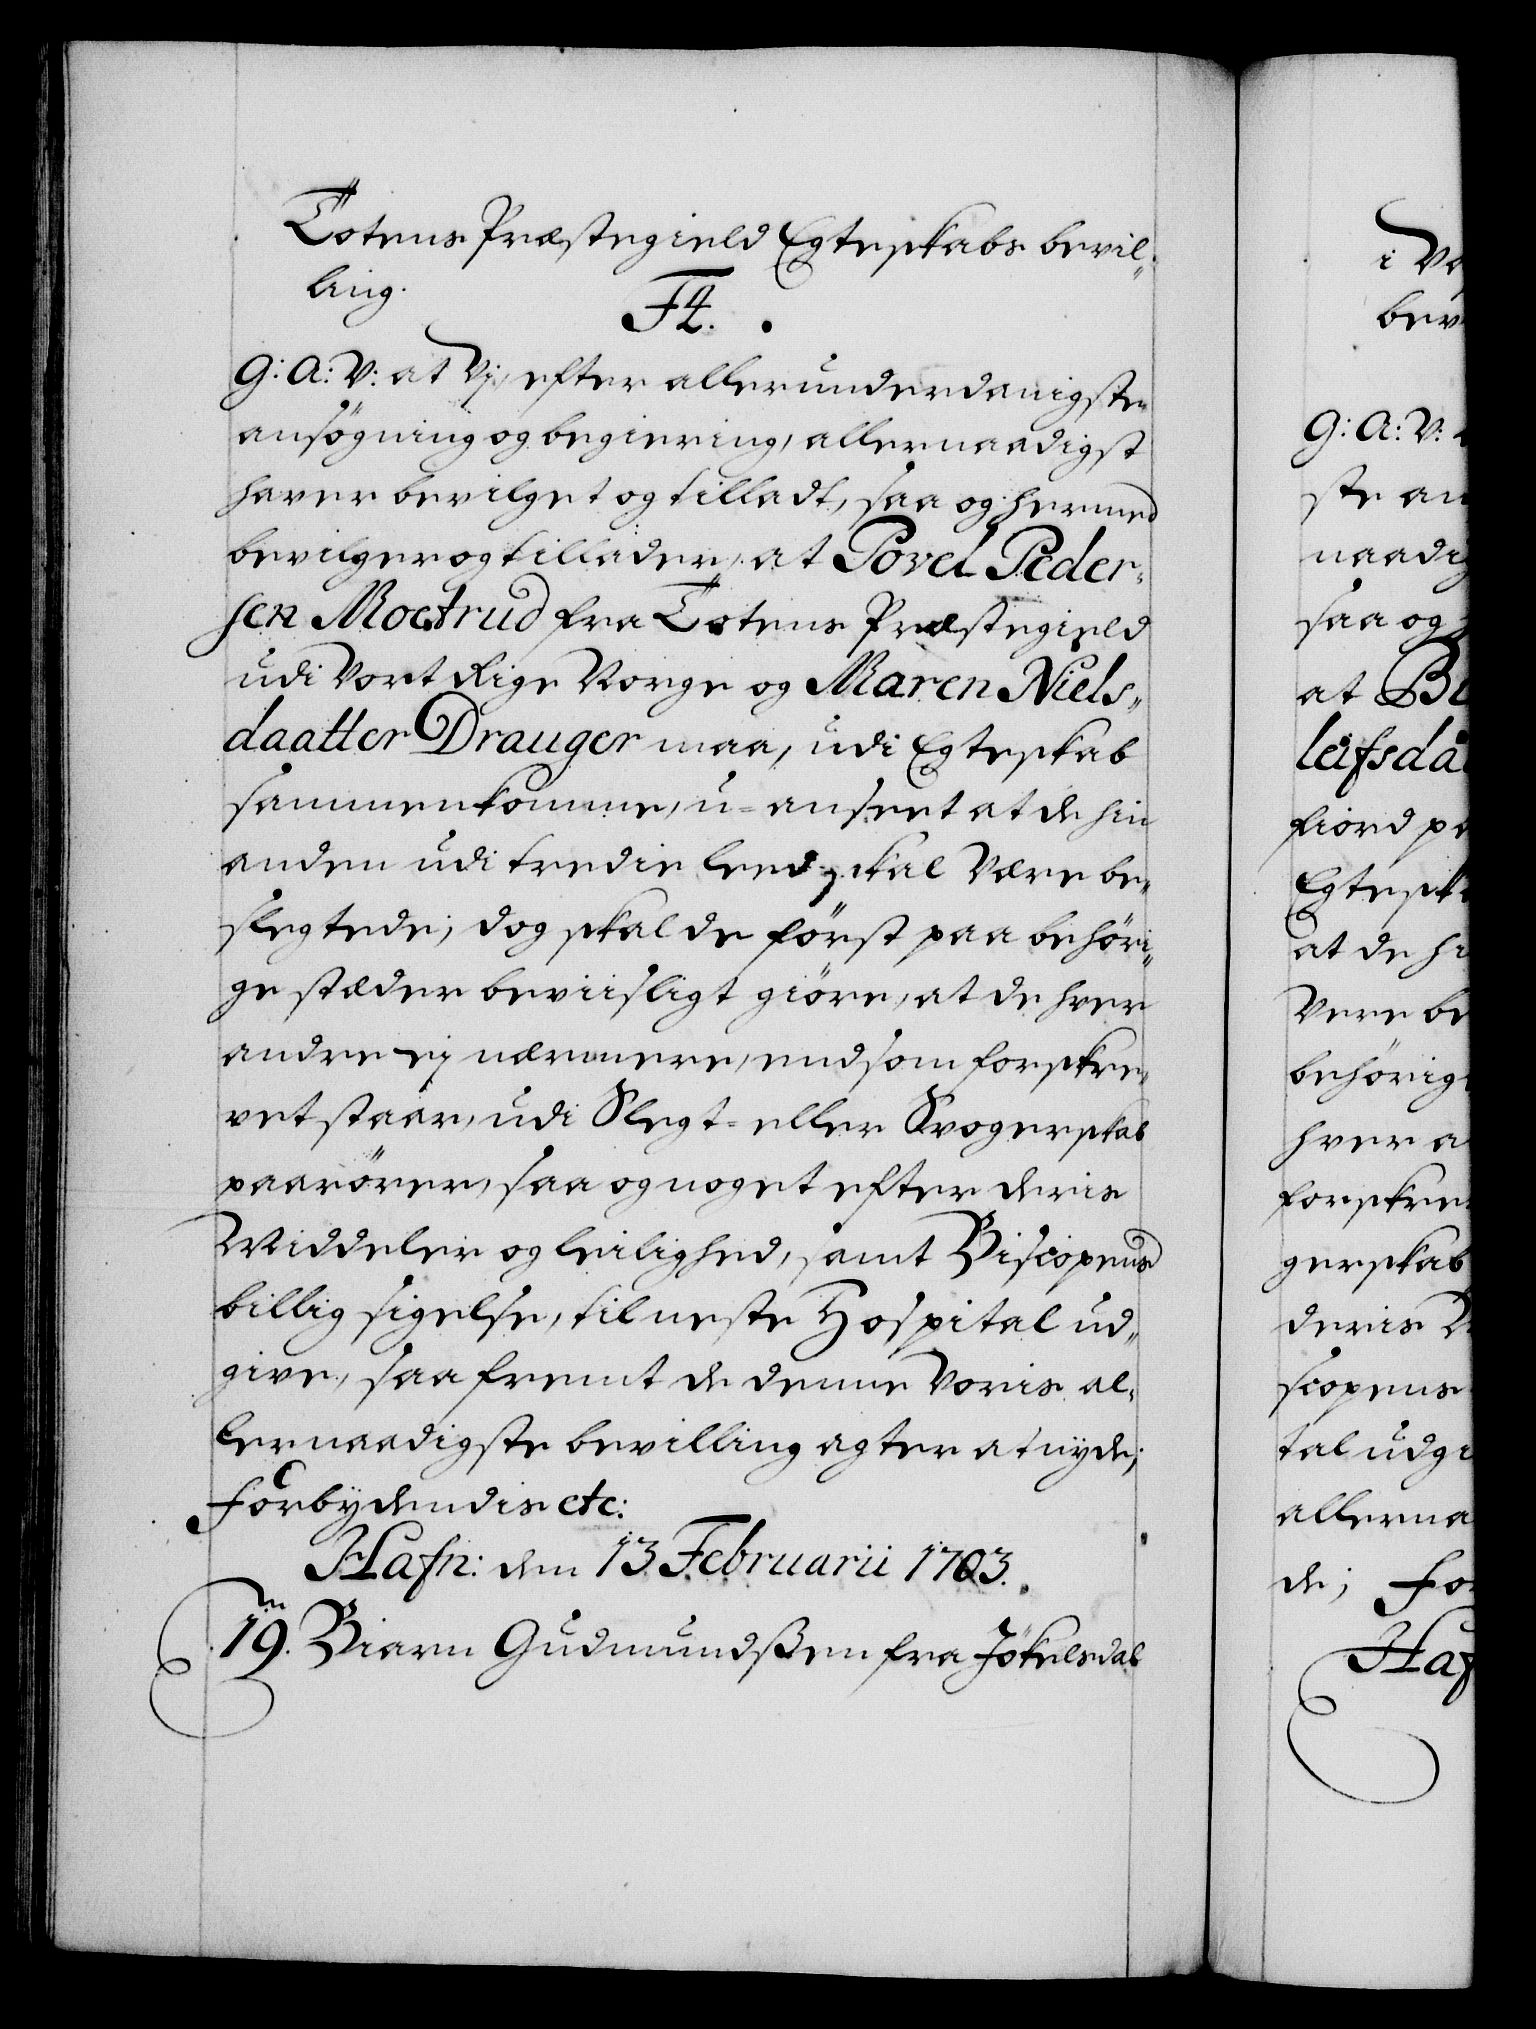 Totens Præstegield Egteskabs bevil„
ling.
F4.
G: A: V: at Vj, efter allerunderdanigste
ansögning og begiering, allernaadigst
haver bevilget og tilladt, saa og hermed
bevilger og tillader, at Povel Peder„
sen Moetrud fra Totens Præstegield
udi Vort Rige Norge og Maren Niels„
daatter Drauger maa, udi Egteskab
sammenkomme, u-anseet at de hin
anden udi tredie leed skal være be„
slegtede; dog skal de först paa behöri„
ge stæder beviisligt giöre, at de hver
andre ej nærmere, end som forskre„
vet staar, udi Slegt- eller Svogerskab
paarörer, saa og noget efter deris
Middeler og leilighed, samt Biscopens
billig sigelse, til neste Hospital ud„
give, saa fremt de denne Voris al„
lernaadigste bevilling agter at nyde;
Forbydendis etc:
Hafn: den 13 Februarii 1703.
19. Biarn Gudmundßen fra Jökelsdal
i Va
bev
G: A: V:
ste an
naadig
saa og
at
leifsda
fiord pa
Egtesk
at de hi
Vere be
behörig
hver a
forskre
gerskab
deris
scopens
tal udgi
allerna
de; For
Haf